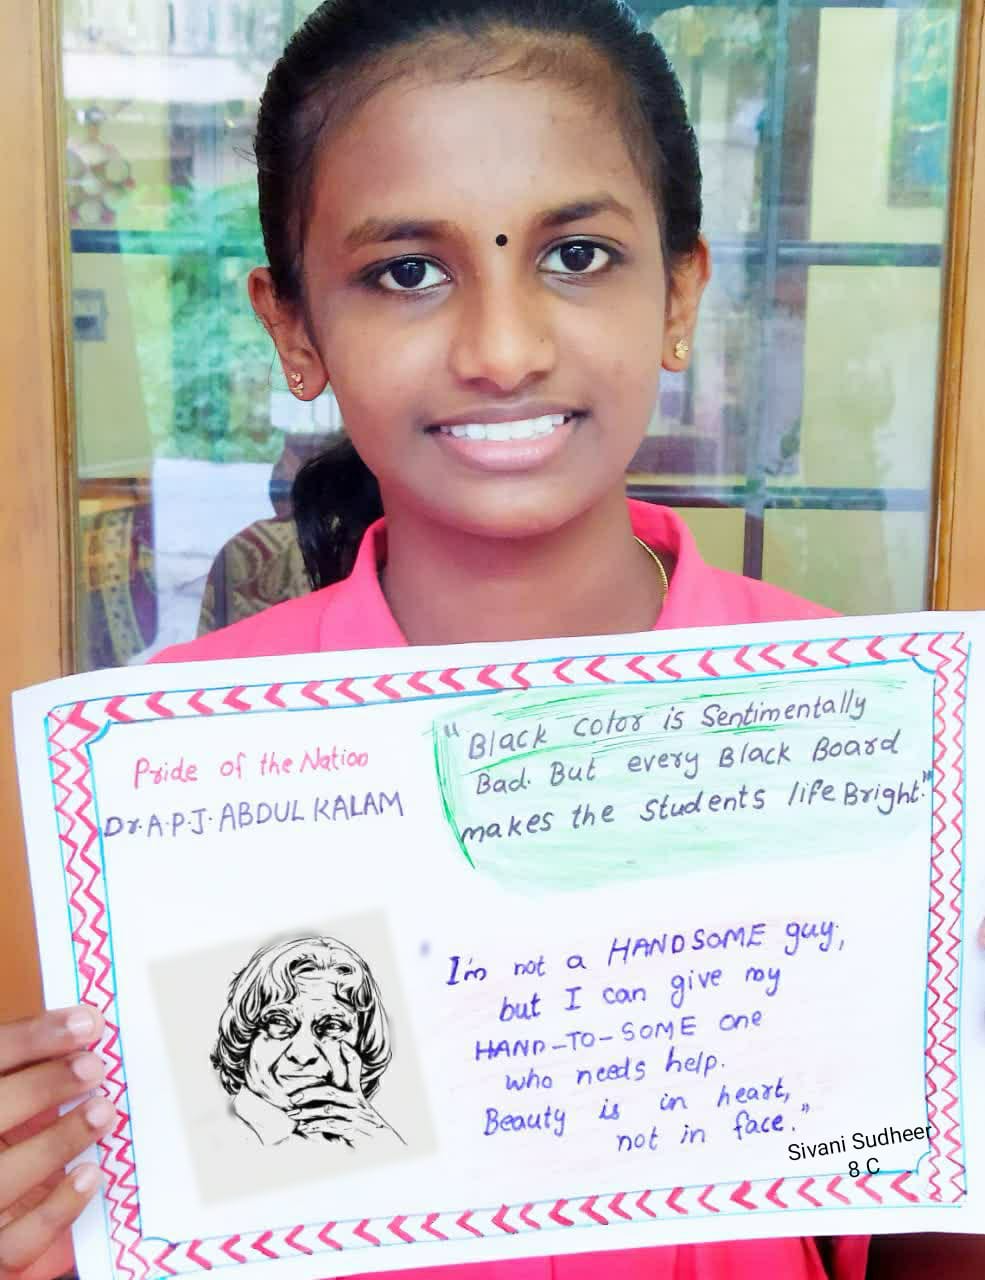 Pride of the Nation
Dr. A.P.J. ABDUL KALAM
"Black color is Sentimentally
Bad. But every Black Board
makes the students life Bright."
I'm not a HANDSOME guy,
but I can give my
HAND-TO-SOME one
who needs help.
Beauty is in heart,
not in face."
Sivani Sudheer
8 C